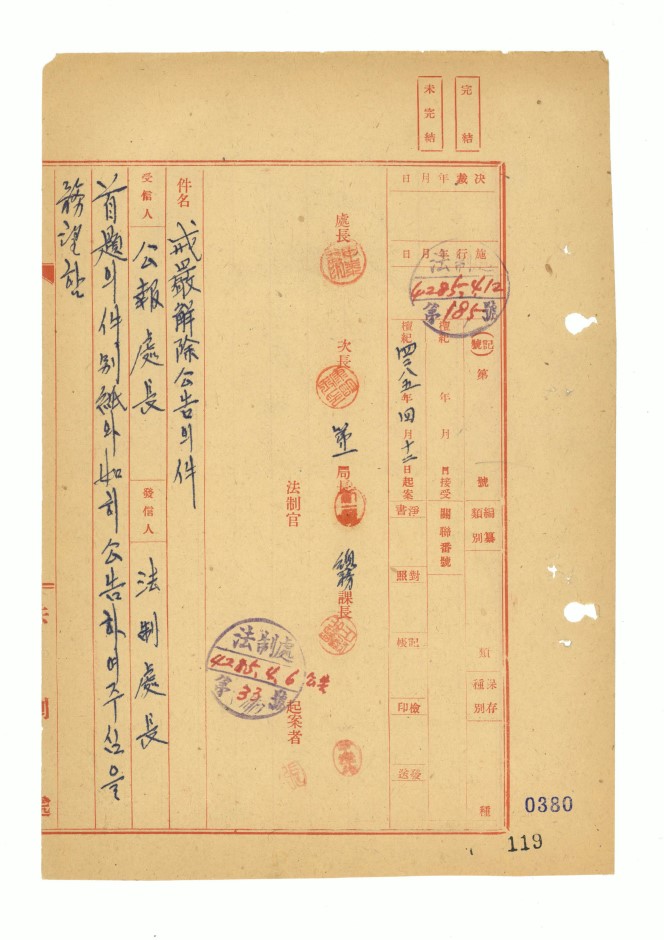 完結
未完結
決裁年月日
施行年月日
記號 第 號
編纂類別 類
保存種別 種
檀紀 年 月 日接受
關聯番號
檀紀四二八五年四月十二日起案
淨書
對照
記帳
檢印
發送
法制處
4285.4.12
第185號
處長
次長
第一局長
總務課長
法制官
起案者
法制處
4285.4.6
第33號
件名 戒嚴解除公告의件
受信人 公報處長
發信人 法制處長
首題의件別紙와如히公告하여주심을
務望함
法制處
0380
119